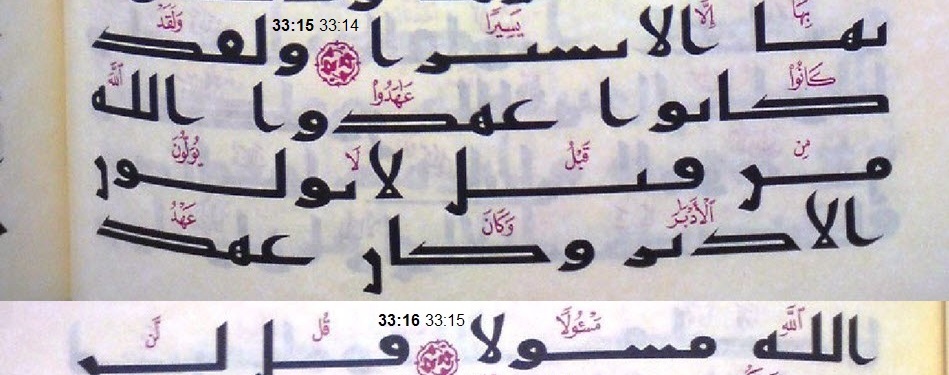 بها إلا يسيرا 33:15 33:14 ولقد
كانوا عهدوا الله
من قبل لا يولون
الأدبر وكان عهد
الله مسولا 33:16 33:15 قل لن